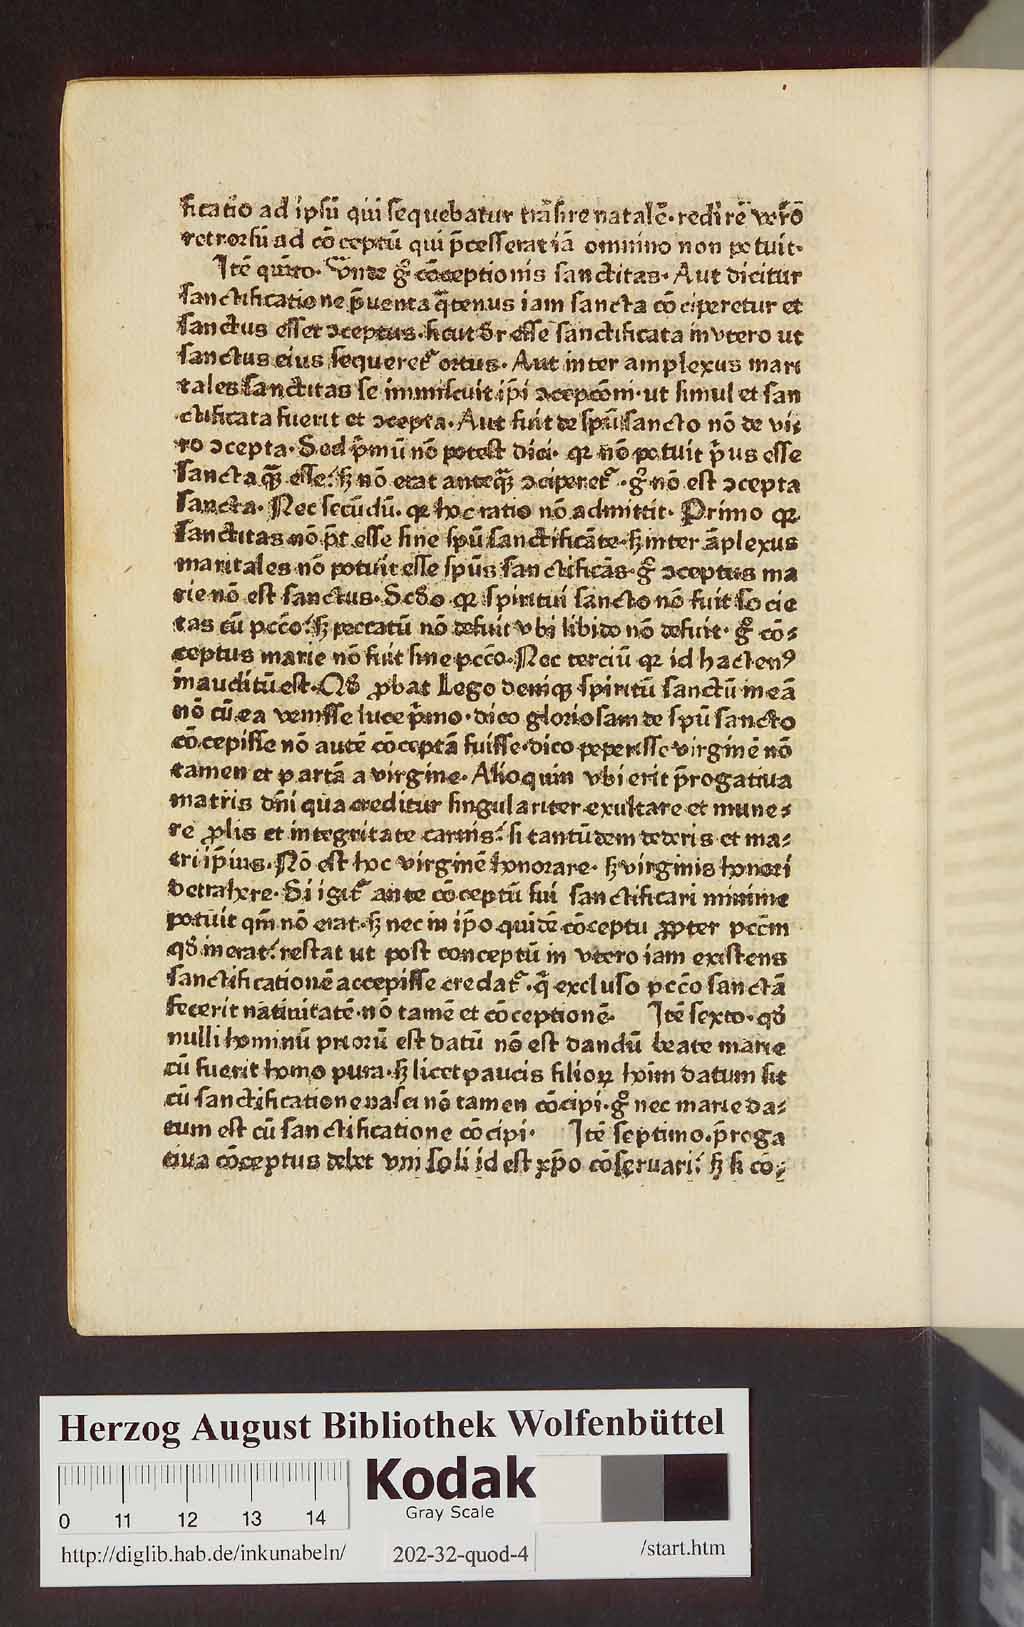 ficatio ad ipsū qui sequebatur trāsire natalē· redire vero
retrorsū ad cōceptū qui p̄cesserat iā omnino non potuit·
Itē quīto· Vnde gͦ cōceptionis sanctitas· Aut dicitur
sanctificatione p̄uenta q̄tenus iam sancta cōciperetur et
sanctus esset ↄceptus· sicut dr̄ esse sanctificata in vtero ut
sanctus eius sequeret᷑ ortus· Aut inter amplexus mari
tales sanctitas se immiscuit ip̄i ↄcepcōni· ut simul et san
ctificata fuerit et ↄcepta· Aut fuit de spū sancto nō de vi⸗
ro ↄcepta· Sed p̄mū nō potest dici· qꝛ nō potuit p̄us esse
sancta q̄ꝫ esse· sꝫ nō erat anteq̄ꝫ ↄciperet᷑· gͦ nō est ↄcepta
sancta· Nec secūdū· qꝛ hoc ratio nō admittit· Primo qꝛ
sanctitas nō p̄t esse sine spū sanctificāte· sꝫ inter āplexus
maritales nō potuit esse spūs sanctificās· gͦ ↄceptus ma
rie nō est sanctus· Scd̄o qꝛ spiritui sancto nō fuit socie
tas cū pccō· sꝫ peccatū nō defuit vbi libido nō defuit· gͦ cō⸗
ceptus marie nō fuit sine pccō· Nec terciū qꝛ id hactenꝰ
inauditū est· Qd̄ ꝓbat Lego deniqꝫ spiritū sanctū in eā
nō cū ea venisse luce p̄mo· dico gloriosam de spū sancto
cōcepisse nō autē cōceptā fuisse· dico peperisse virginē nō
tamen et partā a virgine· Alioquin vbi erit p̄rogatiua
matris dn̄i qua creditur singulariter exultare et mune⸗
re ꝓlis et integritate carnis· si tantūdem dederis et ma⸗
tri ip̄ius· Nō est hoc virginē honorare· sꝫ virginis honori
detrahere· Si igit᷑ ante cōceptū sui sanctificari minime
potuit qm̄ nō erat· sꝫ nec in ip̄o quidē cōceptu ꝓpter pccm̄
qd̄ inerat· restat ut post conceptū in vtero iam existens
sanctificationē accepisse credat᷑· q̄ excluso pccō sanctā
fecerit natiuitatē· nō tamē et cōceptionē· Itē sexto· qd̄
nulli hominū priorū est datū nō est dandū beate marie
cū fuerit homo pura· sꝫ licet paucis filioꝝ hōim datum sit
cū sanctificatione nasci nō tamen cōcipi· gͦ nec marie da⸗
tum est cū sanctificatione cōcipi· Itē septimo· p̄roga
tiua cōceptus debet vni soli id est xp̄o cōseruari· sꝫ si cō⸗
Herzog August Bibliothek Wolfenbüttel
Kodak
Gray Scale
0 11 12 13 14
http://diglib.hab.de/inkunabeln/ 202-32-quod-4 /start.htm